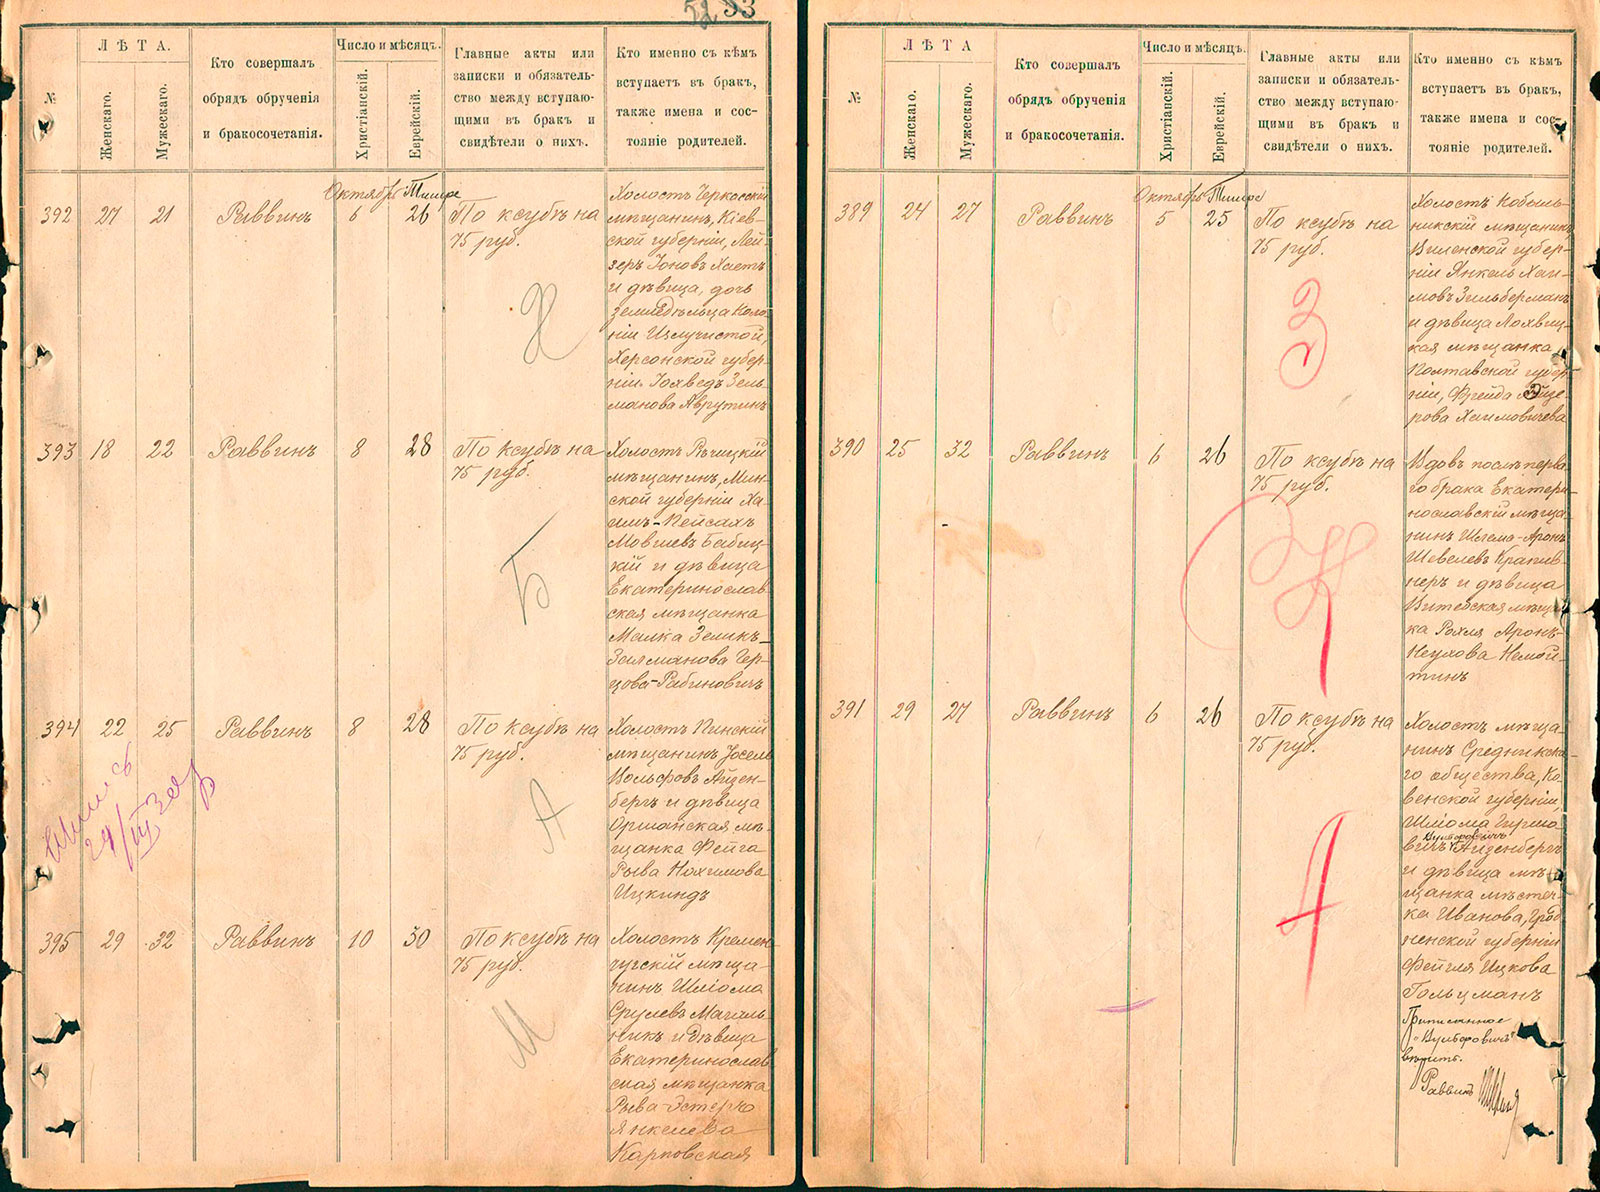 52 53
№
ЛѢТА.
Женскаго.
Мужескаго.
Кто совершалъ
обрядъ обрученія
и бракосочетанія.
Число и мѣсяцъ.
Христіанскій.
Еврейскій.
Главные акты или
записки и обязатель-
ство между вступаю-
щими въ бракъ и
свидѣтели о нихъ.
Кто именно съ кѣмъ
вступаетъ въ бракъ,
также имена и сос-
тояніе родителей.
Октябрь Тишре
392 27 21 Раввинъ 6 26
По ксубѣ на
75 руб.
Холостъ Черкасскій
мѣщанинъ, Кіев-
ской губерніи, Лей-
зеръ Іоновъ Хаетъ
и дѣвица, дочь
земледѣльца Коло-
ніи Излучистой,
Херсонской губер-
ніи. Іохведъ Зель-
манова Аврутинъ
Х
393 18 22 Раввинъ 8 28
По ксубѣ на
75 руб.
Холостъ Рѣчицкій
мѣщанинъ, Мин-
ской губерніи Ха-
имъ-Пейсахъ
Мовшевъ Бабиц-
кій и дѣвица
Екатеринослав-
ская мѣщанка
Малка Зеликъ-
Залманова Гер-
цова-Рабиновичъ
Б
394 22 25 Раввинъ 8 28
По ксубѣ на
75 руб.
Холостъ Пинскій
мѣщанинъ Іосель
Вольфовъ Айзен-
бергъ и дѣвица
Оршанская мѣ-
щанка Фейга
Рыва Нохимова
Ицкиндъ
А
395 29 32 Раввинъ 10 30
По ксубѣ на
75 руб.
Холостъ Кремен-
чугскій мѣща-
нинъ Шлома
Срулевъ Магаль-
никъ и дѣвица
Екатеринослав-
ская мѣщанка
Рыва-Эстеръ
Янкелева
Карповская
М
№
ЛѢТА
Женскаго.
Мужескаго.
Кто совершалъ
обрядъ обрученія
и бракосочетанія.
Число и мѣсяцъ.
Христіанскій.
Еврейскій.
Главные акты или
записки и обязатель-
ство между вступаю-
щими въ бракъ и
свидѣтели о нихъ.
Кто именно съ кѣмъ
вступаетъ въ бракъ,
также имена и сос-
тояніе родителей.
Октябрь Тишре
389 24 27 Раввинъ 5 25
По ксубѣ на
75 руб.
Холостъ Кобыль-
никскій мѣщанинъ
Виленской губер-
ніи Янкель Хаи-
мовъ Зильберманъ
и дѣвица Лохвиц-
кая мѣщанка,
Полтавской губер-
ніи, Фрейда
рова Хаимовичева
З
390 25 32 Раввинъ 6 26
По ксубѣ на
75 руб.
Вдовъ послѣ перва-
го брака Екатери-
нославскій мѣща-
нинъ Шлема-Аронъ
Шевелевъ Крапив-
неръ и дѣвица
Витебская мѣщан-
ка Рохля Аронъ-
Неухова Немой-
тинъ
К
391 29 27 Раввинъ 6 26
По ксубѣ на
75 руб.
Холостъ мѣща-
нинъ Средникска-
го общества, Ко-
венской губерніи,
Шлома Гиршо-
Вульфовичъ
вичъ Айзенбергъ
и дѣвица мѣ-
щанка мѣстеч-
ка Иванова, Грод-
ненской губерніи
Фейгля Ицкова
Гольцманъ
А
Приписанное
"Вульфовичъ"
вѣрить.
Раввинъ